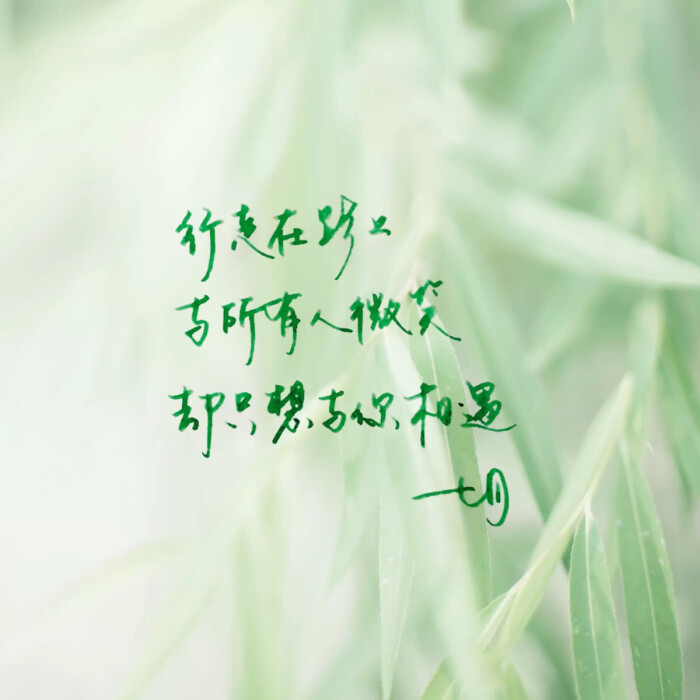 行走在路上
与所有人微笑
却只想与你相遇
一七月